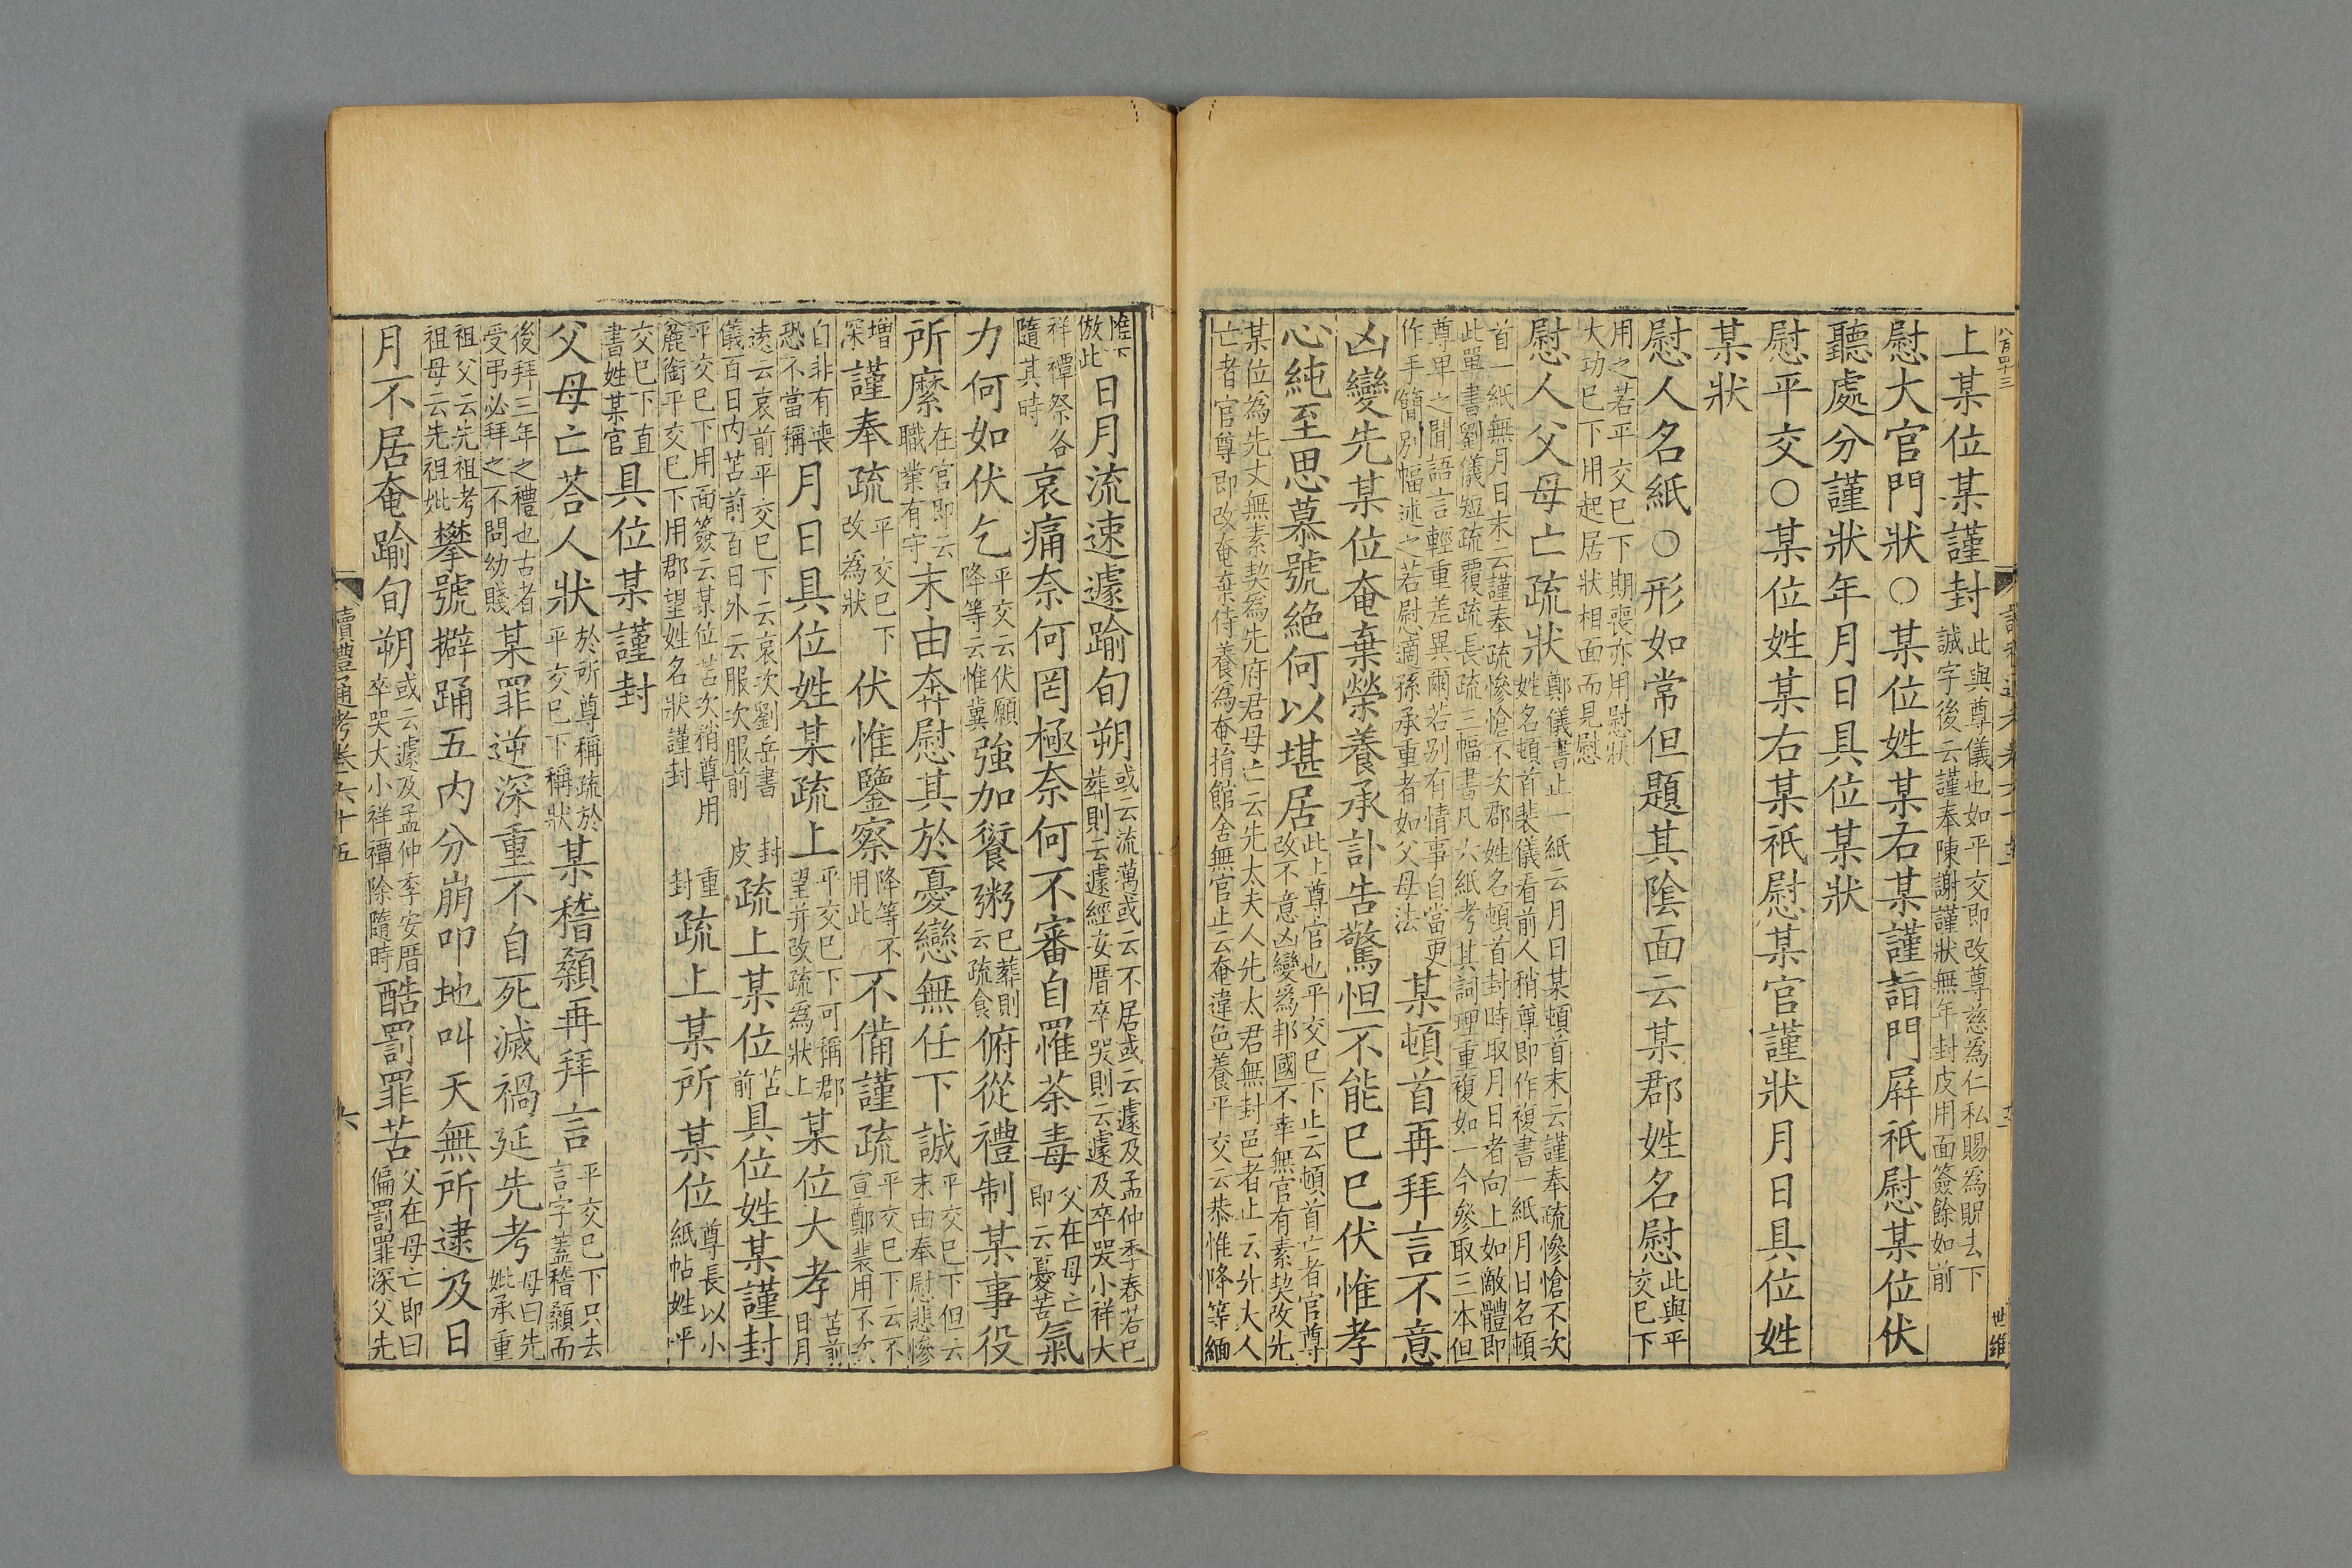 八百四十三
上某位某謹封此與尊儀也如平交即改尊慈為仁私賜為貺去下誠字後云謹奉陳謝謹狀無年封皮用面簽餘如前
慰大官門狀○某位姓某右某謹詣門屏祇慰某位伏
聽處分謹狀年月日具位某狀
慰平交○某位姓某右某祇慰某官謹狀月日具位姓
某狀
慰人名紙○形如常但題其陰面云某郡姓名慰此與平交已下
用之若平交已下期喪亦用慰狀大功已下用起居狀相面而見慰
慰人父母亡疏狀鄭儀書止一紙云月日某頓首末云謹奉疏慘愴不次姓名頓首裴儀看前人稍尊即作複書一紙月日名頓
首一紙無月日末云謹奉疏慘愴不次郡姓名頓首封時取月日者向上如敵體即此單書劉儀短疏覆疏長疏三幅書凡六紙考其詞理重複如一今參取三本但
尊卑之間語言輕重差異爾若別有情事自當更作手簡別幅述之若慰適孫承重者如父母法某頓首再拜言不意
凶變先某位奄棄榮養承訃告驚怛不能已已伏惟孝
心純至思慕號絕何以堪居此上尊官也平交已下止云頓首亡者官尊改不意凶變為邦國不幸無官有素契改先
某位為先丈無素契為先府君母亡云先太夫人先太君無封邑者止云外大人亡者官尊即改奄棄侍養為奄捐館舍無官止云奄違色養平交云恭惟降等緬
世維
惟下倣此日月流速遽踰旬朔或云流薄或云不居或云遽及孟仲季春若已葬則云遽經安厝卒哭則云遽及卒哭小祥大
祥禫祭各隨其時哀痛奈何罔極奈何不審自罹荼毒父在母亡即云憂苦氣
力何如伏乞平交云伏願降等云惟冀強加餐粥已葬則云疏食俯從禮制某事役
所縻在官即云職業有守末由奔慰其於憂戀無任下誠平交已下但云末由奉慰悲慘
增深謹奉疏平交已下改為狀伏惟鑒察降等不用此不備謹疏平交已下云不宣鄭裴用不次
自非有喪恐不當稱月日具位姓某疏上平交已下可稱郡望并改疏為狀上某位大孝苫前日月
遠云哀前平交已下云哀次劉岳書儀百日內苫前百日外云服次服前封皮疏上某位苫前具位姓某謹封
平交已下用面簽云某位苫次稍尊用簏銜平交已下用郡望姓名狀謹封重封疏上某所某位尊長以小紙帖姓呼
交已下直書姓某官具位某謹封
父母亡荅人狀於所尊稱疏於平交已下稱狀某稽顙再拜言平交已下只去言字蓋稽顙而
後拜三年之禮也古者受弔必拜之不問幼賤某罪逆深重不自死滅禍延先考母曰先妣承重
祖父云先祖考祖母云先祖妣攀號擗踊五內分崩叩地叫天無所逮及日
月不居奄踰旬朔或云遽及孟仲季安厝卒哭大小祥禫除隨時酷罰罪苦父在母亡即曰偏罰罪深父先
讀禮通考卷六十五
六